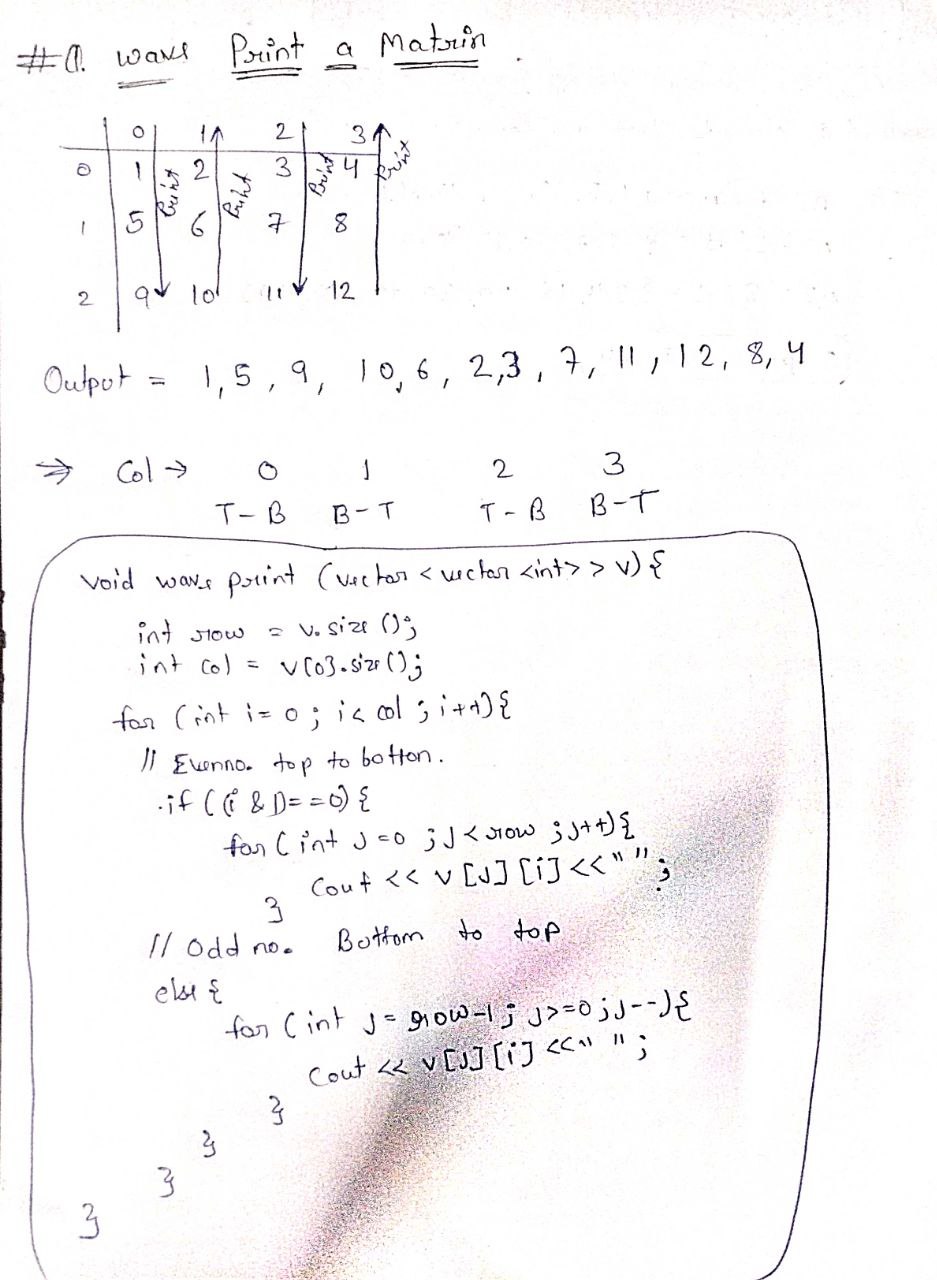 #Q. wave Print a Matrix.
0 1 2 3
0 1 Print 2 Print 3 Print 4 Print
1 5 6 7 8
2 9 10 11 12
Output = 1, 5, 9, 10, 6, 2, 3, 7, 11, 12, 8, 4.
⇒ Col → 0 1 2 3
T-B B-T T-B B-T
void wave print (vector < vector <int> > v) {
int row = v. size ();
int col = v[0].size();
for (int i = 0 ; i < col ; i++) {
// Even no. top to bottom.
if ((i & 1) == 0) {
for (int J = 0 ; J < row ; J++) {
Cout << v [J] [i] << " " ;
}
// Odd no. Bottom to top
else {
for (int J = row-1 ; J >= 0 ; J--) {
Cout << v[J] [i] << " " ;
}
}
}
}